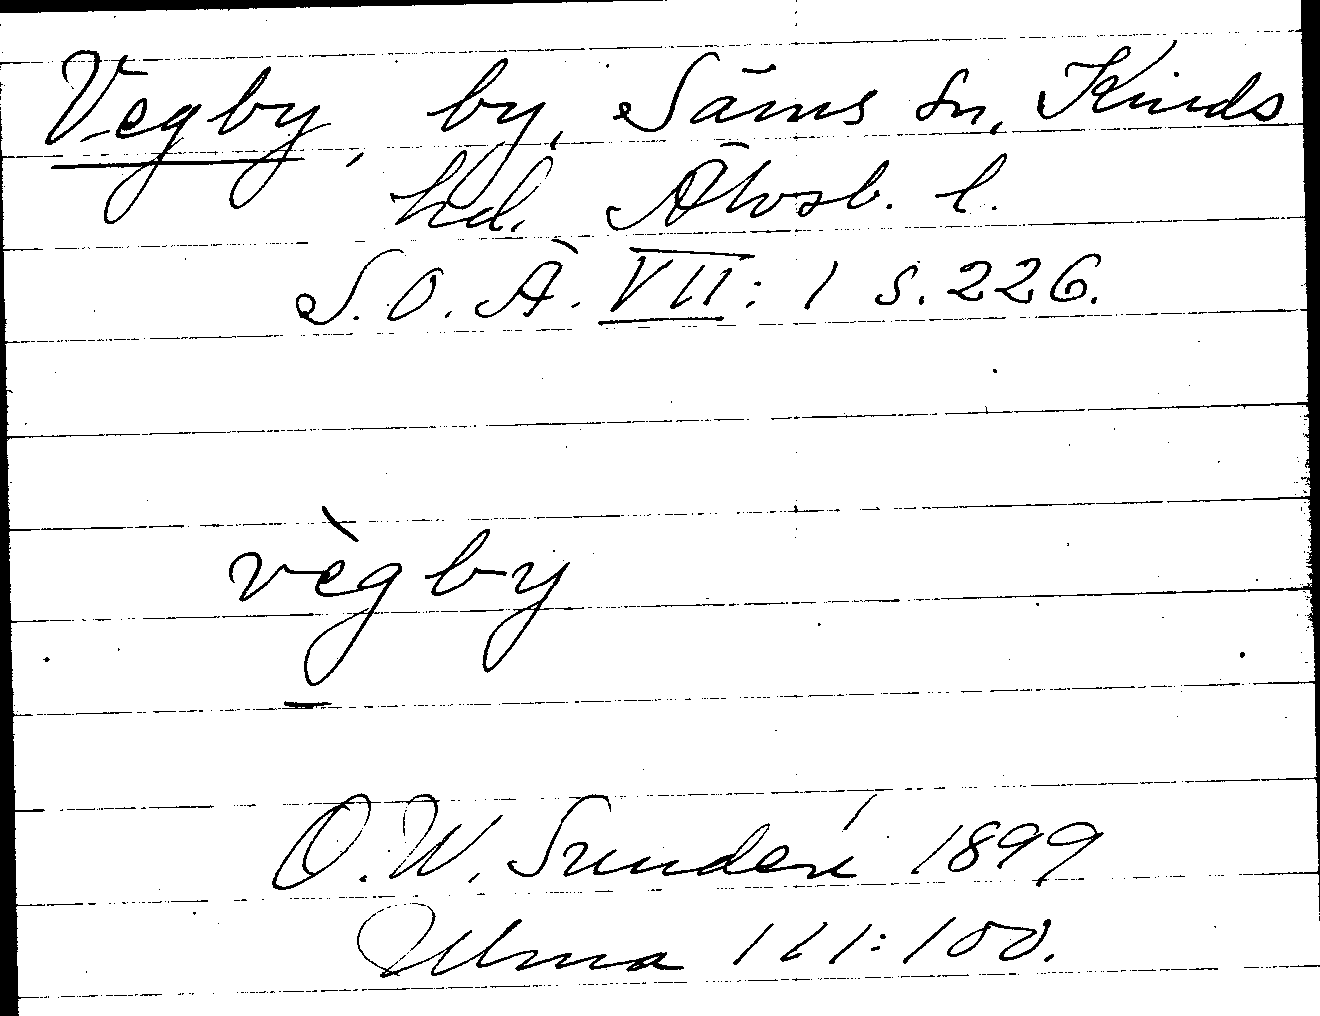 Vegby, by, Säms sn, Kinds
hd. Älvsb. l.
S.O.Ä. VII: 1 s. 226.
vègby
O.W. Sundén 1899
Ulma 111:100.